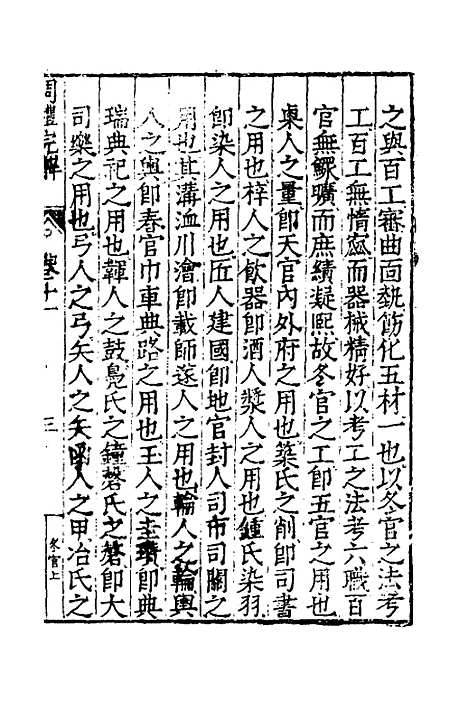 之與百工審曲面埶飭化五材一也以冬官之法考
工百工無惰窳而器械精好以考工之法考六職百
官無鰥曠而庶績凝熙故冬官之工即五官之用也
㮚人之量即天官內外府之用也築氏之削即司書
之用也梓人之飲器即酒人漿人之用也鍾氏染羽
即染人之用也匠人建國即地官封人司市司關之
用也其溝洫川澮即載師遂人之用也輪人之輪輿
人之輿即春官巾車典路之用也玉人之圭瓚即典
瑞典祀之用也韗人之鼓鳧氏之鐘磬氏之磬即大
司樂之用也弓人之弓矢人之矢函人之甲冶氏之
周禮完解
卷十一
三
冬官上